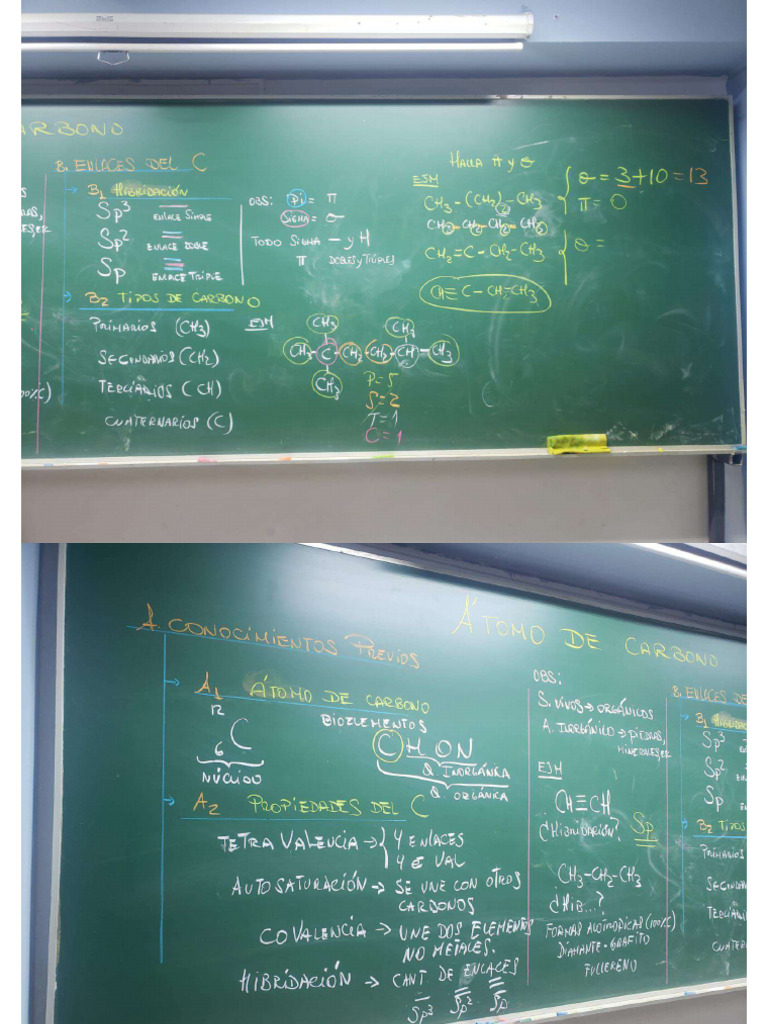 ARBONO
B. ENLACES DEL C
B1 HIBRIDACIÓN
Sp³ ENLACE SIMPLE
Sp² ENLACE DOBLE
Sp ENLACE TRIPLE
B2 TIPOS DE CARBONO
PRIMARIOS (CH3)
SECUNDARIOS (CH2)
TERCIARIOS (CH)
CUATERNARIOS (C)
OBS: Pi = π
SIGMA = σ
TODO SIGMA — y H
π DOBLES y TRIPLES
EJM
CH3
CH3
CH3 - C - CH2 - CH2 - CH - CH3
CH3
P = 5
S = 2
T = 1
C = 1
HALLA π y σ
EJM
CH3 - (CH2)2 - CH3
CH3 - CH2 - CH2 - CH3
σ = 3 + 10 = 13
π = 0
CH2 = C - CH2 - CH3
σ =
CH ≡ C - CH - CH3
ÁTOMO DE CARBONO
A. CONOCIMIENTOS PREVIOS
A1 ÁTOMO DE CARBONO
12
6 C
NÚCLIDO
BIOELEMENTOS
C H O N
Q. INORGÁNIKA
Q. ORGÁNKA
A2 PROPIEDADES DEL C
TETRAVALENCIA → 4 ENLACES
4 e⁻ VAL
AUTOSATURACIÓN → SE UNE CON OTROS
CARBONOS
COVALENCIA → UNE DOS ELEMENTOS
NO METALES.
HIBRIDACIÓN → CANT DE ENLACES
Sp³ Sp² Sp
OBS:
S. VIVOS → ORGÁNICOS
A. INORGÁNICO → PIEDRAS,
MINERALES, etc
EJM
CH≡CH
¿HIBRIDACIÓN? Sp
CH3-CH2-CH3
¿HIB...?
FORMAS ALOTRÓPICAS (100%C)
DIAMANTE - GRAFITO
FULLERENO
B. ENLACES DE
B1 HIBRID
Sp³
Sp²
Sp
B2 TIPOS
PRIMARIOS
SECUND
TERCIA
CUATER